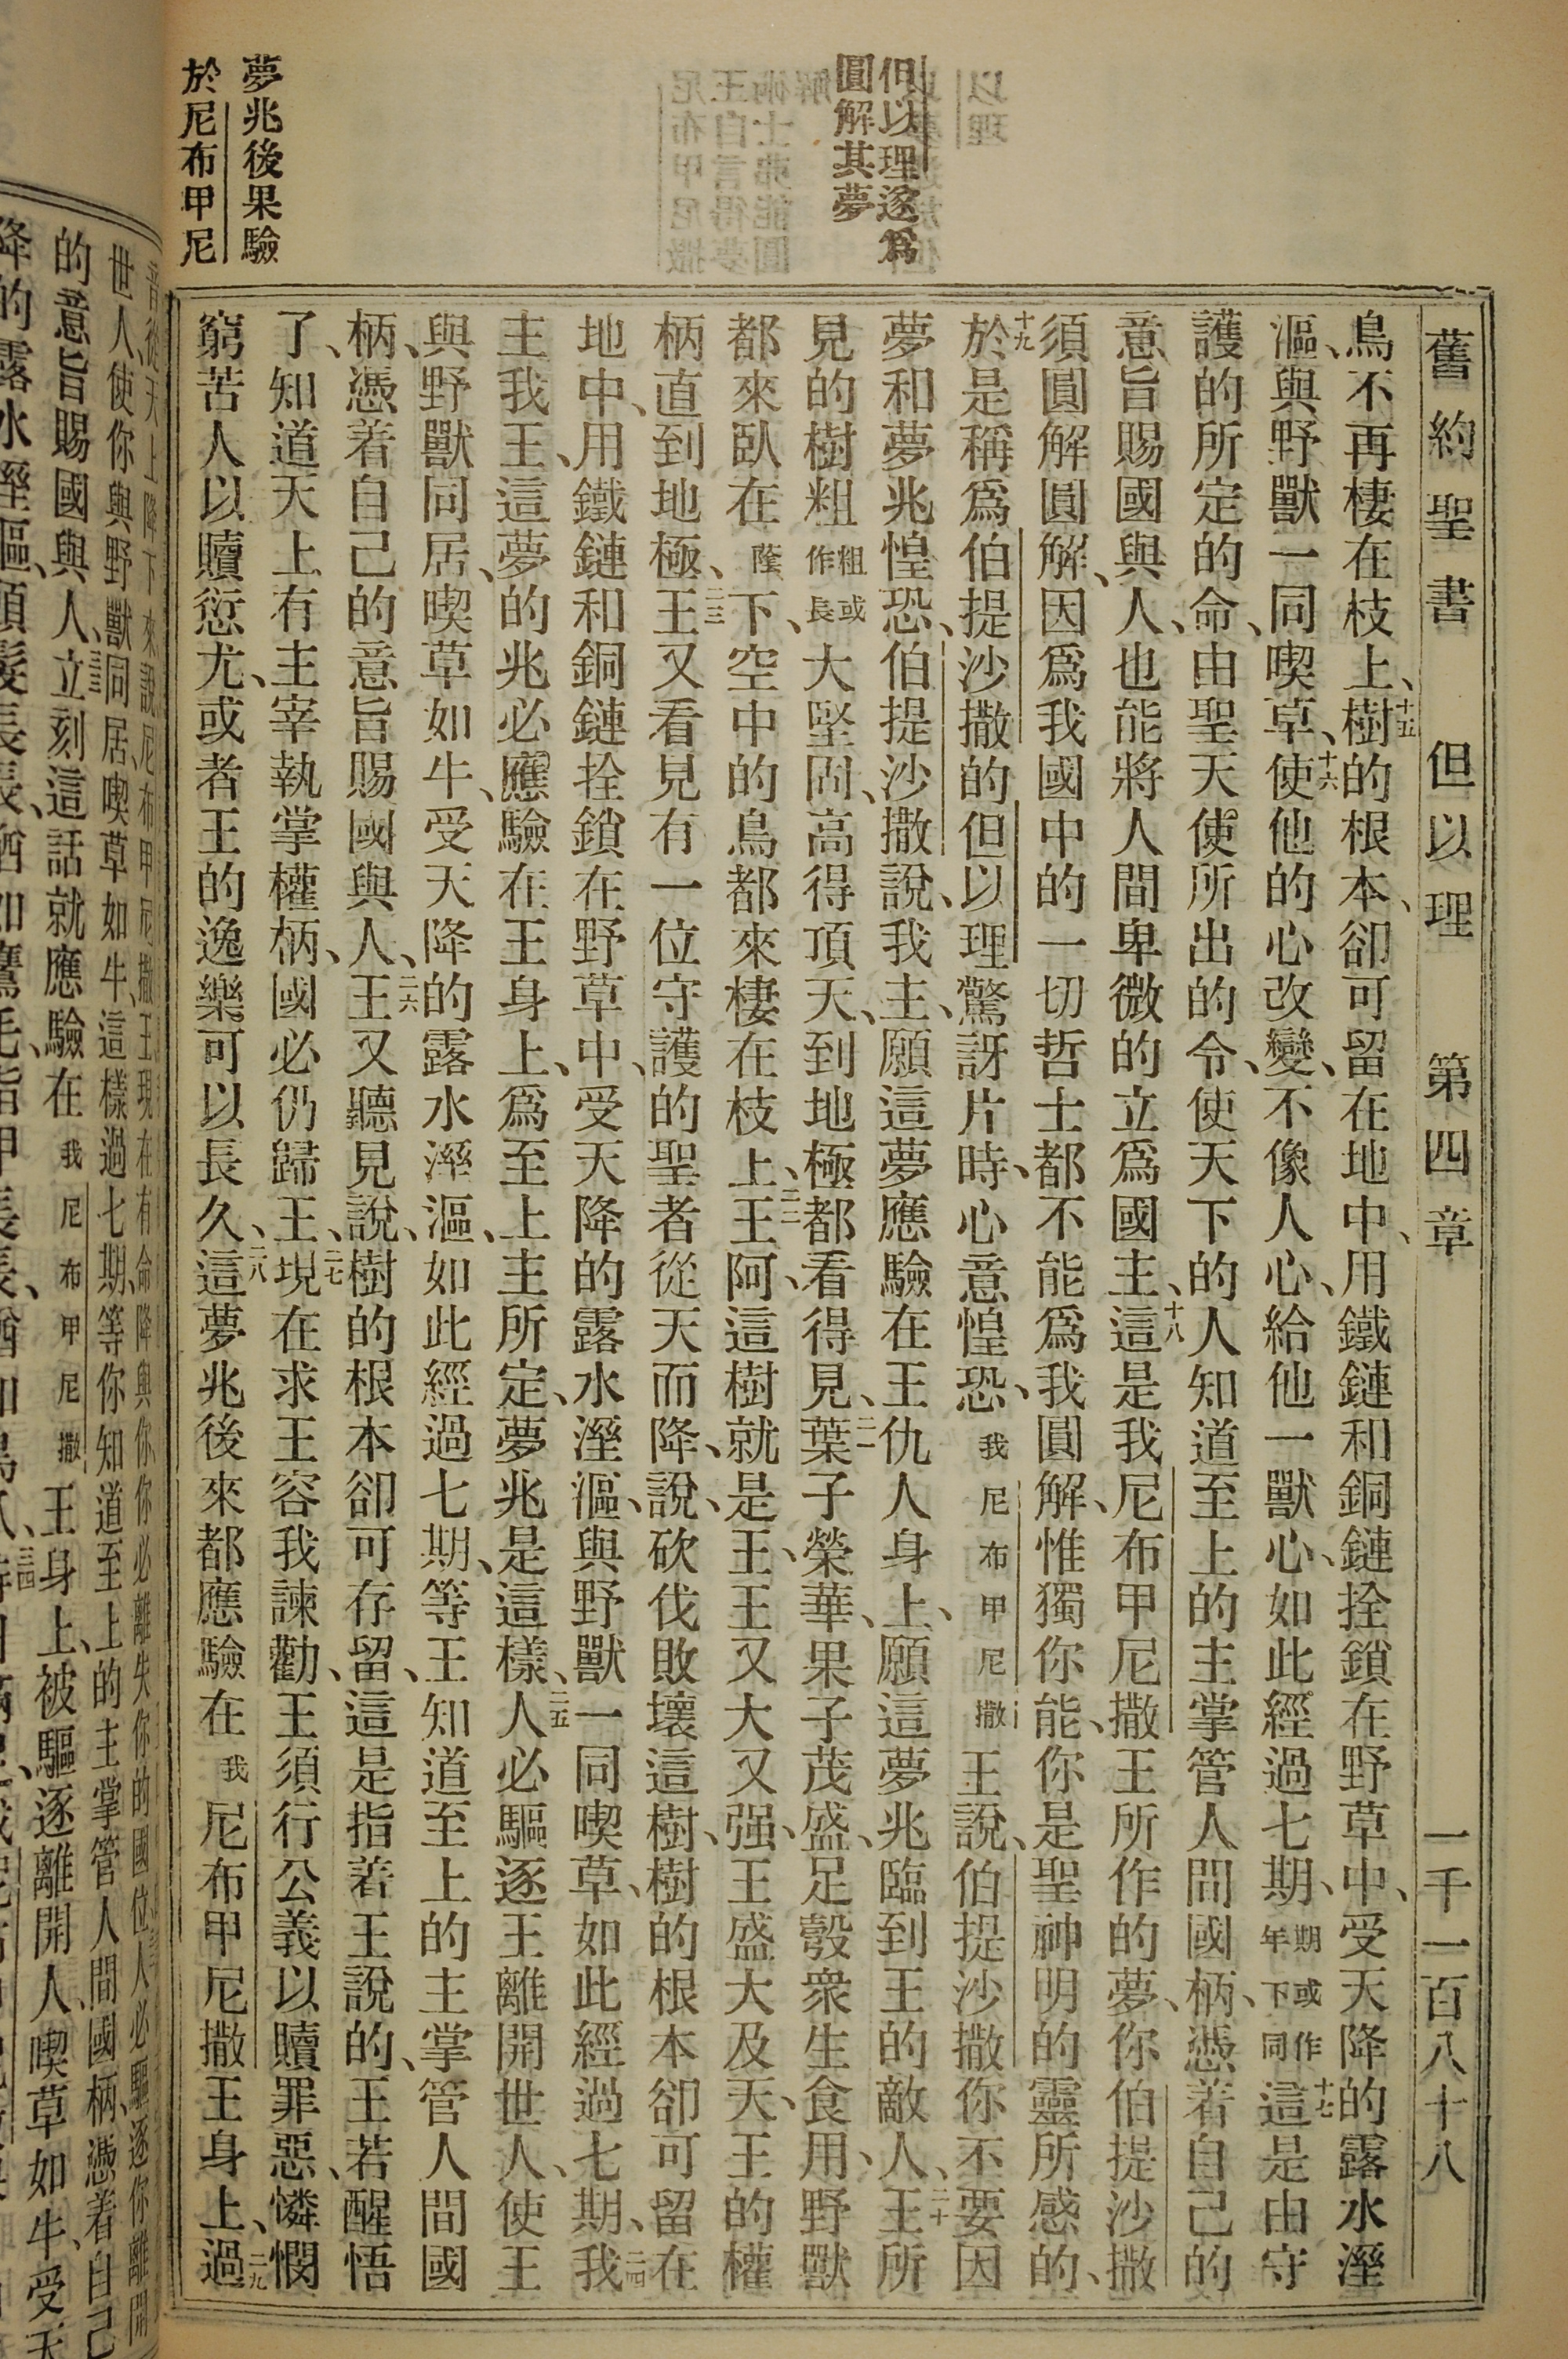 舊約聖書 但以理 第四章 一千一百八十八
但以理遂爲
圓解其夢
夢兆後果驗
於尼布甲尼
鳥不再棲在枝上、十五樹的根本、卻可留在地中、用鐵鏈和銅鏈拴鎖在野草中、受天降的露水溼
漚、與野獸一同喫草、十六使他的心改變、不像人心、給他一獸心、如此經過七期、期或作年下同十七這是由守
護的所定的命、由聖天使所出的令、使天下的人知道至上的主掌管人間國柄、憑着自己的
意旨賜國與人、也能將人間卑微的立爲國主、十八這是我尼布甲尼撒王所作的夢、你伯提沙撒
須圓解圓解、因爲我國中的一切哲士都不能爲我圓解、惟獨你能、你是聖神明的靈所感的、
十九於是稱爲伯提沙撒的但以理驚訝片時、心意惶恐、我尼布甲尼撒王說、伯提沙撒你不要因
夢和夢兆惶恐、伯提沙撒說、我主、願這夢應驗在王仇人身上、願這夢兆臨到王的敵人、二十王所
見的樹粗粗或作長大堅固、高得頂天、到地極都看得見、二一葉子榮華、果子茂盛、足彀衆生食用、野獸
都來臥在蔭下、空中的鳥都來棲在枝上、二二王阿、這樹就是王、王又大又强、王盛大及天、王的權
柄直到地極、二三王又看見有一位守護的聖者從天而降、說、砍伐敗壞這樹、樹的根本卻可留在
地中、用鐵鏈和銅鏈拴鎖在野草中、受天降的露水溼漚、與野獸一同喫草、如此經過七期、二四我
主我王、這夢的兆必應驗在王身上、爲至上主所定、夢兆是這樣、二五人必驅逐王離開世人、使王
與野獸同居、喫草如牛、受天降的露水溼漚、如此經過七期、等王知道至上的主掌管人間國
柄、憑着自己的意旨賜國與人、二六王又聽見說、樹的根本卻可存留、這是指着王說的、王若醒悟
了、知道天上有主宰執掌權柄、國必仍歸王、二七王、現在求王容我諫勸、王須行公義以贖罪惡、憐憫
窮苦人以贖愆尤、或者王的逸樂可以長久、二八這夢兆後來都應驗在我尼布甲尼撒王身上、二九過
音從天上降下來說尼布甲尼撒王現在有命降與你你必離失你的國位人必驅逐你離開
世人、使你與野獸同居、喫草如牛、這樣過七期、等你知道至上的主掌管人間國柄、憑着自己
的意旨賜國與人、三三立刻這話就應驗在我尼布甲尼撒王身上、被驅逐離開人、喫草如牛、受天
降的露水溼漚、頭髮長長、